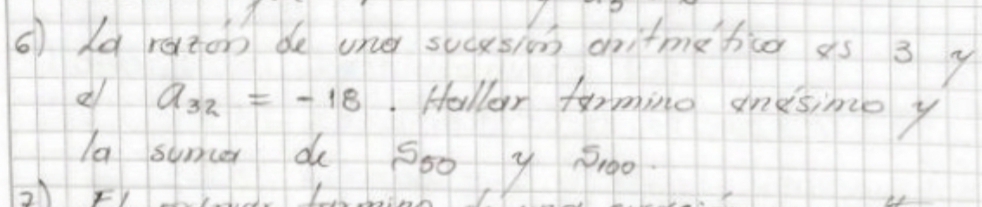 6) La razón de una sucesión aritmética es 3 y
el a32 = -18. Hallar termino enésimo y
la suma de S50 y S100.
7) El